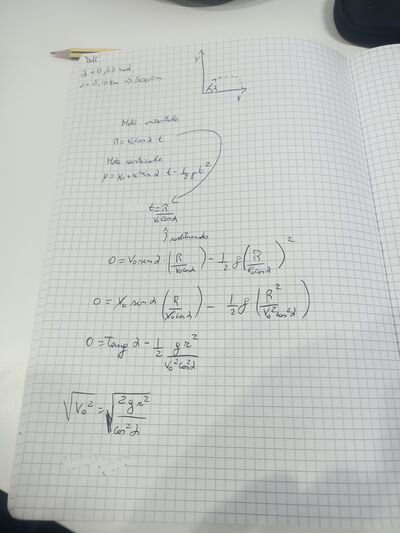 Dati
α = 0,66 rad
y
x
α
Moto orizzontale
R = v₀ cos α · t
Moto verticale
y = y₀ + v₀ sin α t − 1/2 g t²
t = R / (v₀ cos α)
sostituendo
0 = v₀ sin α · (R / (v₀ cos α)) − 1/2 g (R / (v₀ cos α))²
0 = v₀ sin α (R / (v₀ cos α)) − 1/2 g (R² / (v₀² cos² α))
0 = Tang α − 1/2 g r² / (v₀² cos² α)
√(v₀²) = √(2 g r² / cos² α)